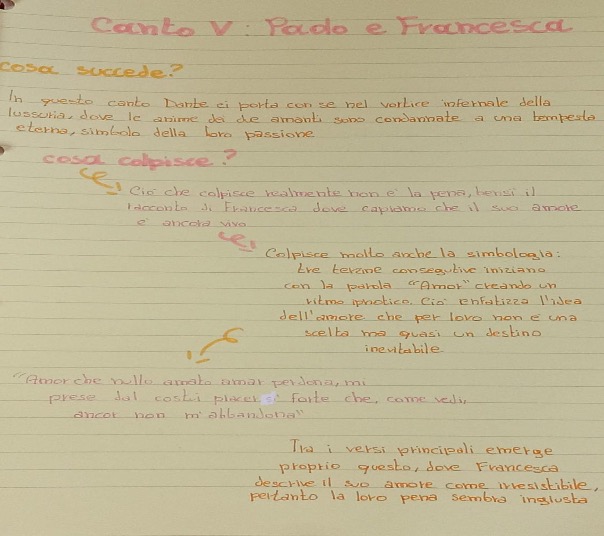 Canto V: Paolo e Francesca
cosa succede?
In questo canto Dante ci porta con se nel vortice infernale della
lussuria, dove le anime dei due amanti sono condannate a una tempesta
eterna, simbolo della loro passione
cosa colpisce?
Ciò che colpisce realmente non è la pena, bensì il
racconto di Francesca dove capiamo che il suo amore
è ancora vivo
Colpisce molto anche la simbologia:
tre terzine consegutive iniziano
con la parola "Amor" creando un
ritmo ipnotico. Ciò enfatizza l'idea
dell'amore che per loro non è una
scelta ma quasi un destino
inevitabile
"Amor che nullo amato amar perdona, mi
prese dal costui piacer sì forte che, come vedi,
ancor non m'abbandona"
Tra i versi principali emerge
proprio questo, dove Francesca
descrive il suo amore come irresistibile,
pertanto la loro pena sembra ingiusta